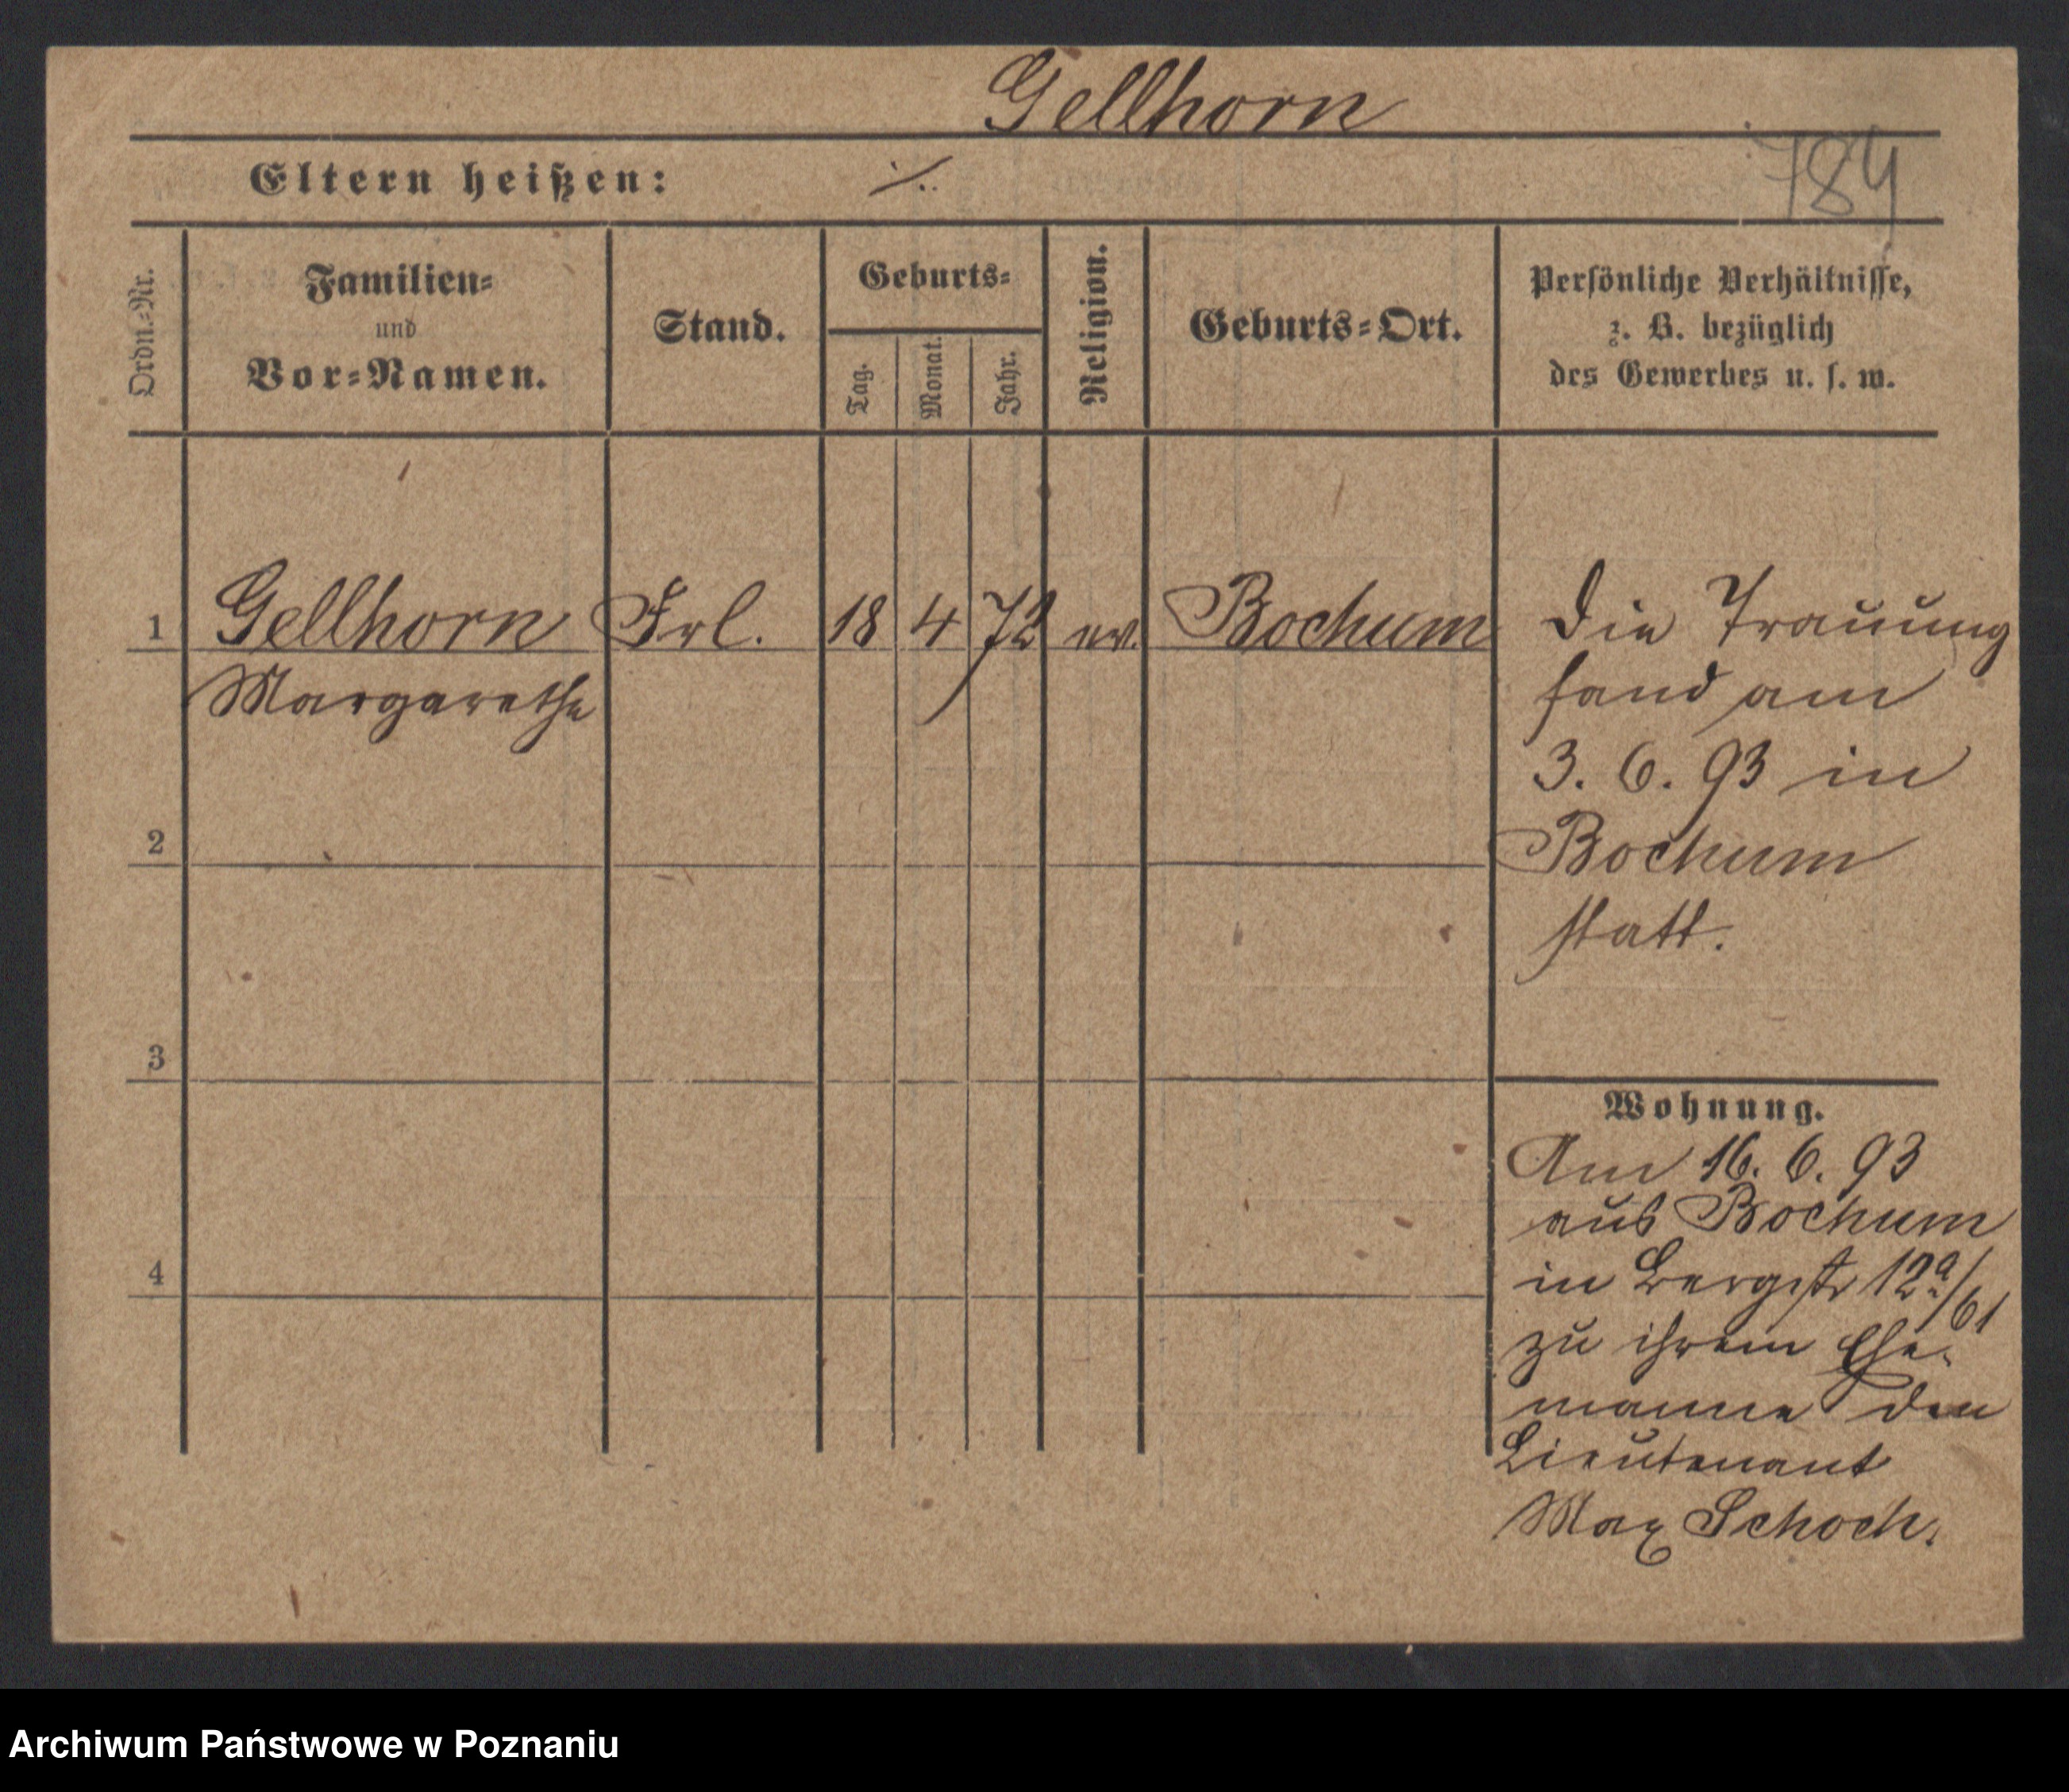 Gellhorn
Eltern heißen: ./.
784
Ordn.-Nr.
Familien-
und
Vor-Namen.
Stand.
Geburts-
Tag.
Monat.
Jahr.
Religion.
Geburts-Ort.
Persönliche Verhältnisse,
z. B. bezüglich
des Gewerbes u. s. w.
1 Gellhorn Frl. 18 4 72 ev. Bochum
Margarethe
2
3
4
Die Trauung
fand am
3. 6. 93 in
Bochum
statt.
Wohnung.
Am 16. 6. 93
aus Bochum
in Bergstr 12a/61
zu ihrem Ehe-
manne den
Lieutenant
Max Schoch.
Archiwum Państwowe w Poznaniu